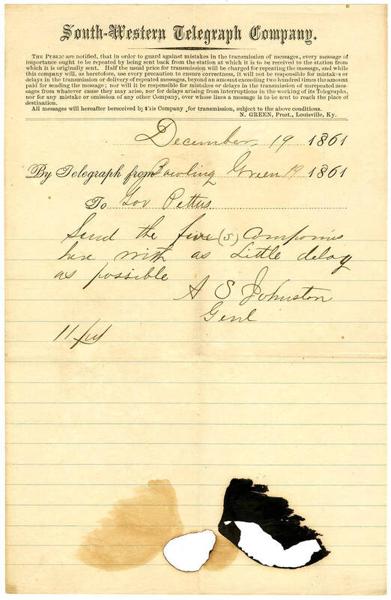 South-Western Telegraph Company.
THE PUBLIC are notified, that in order to guard against mistakes in the transmission of messages, every message of
importance ought to be repeated by being sent back from the station at which it is to be received to the station from
which it is originally sent. Half the usual price for transmission will be charged for repeating the message, and while
this company will, as heretofore, use every precaution to ensure correctness, it will not be responsible for mistakes or
delays in the transmission or delivery of repeated messages, beyond an amount exceeding two hundred times the amount
paid for sending the message; nor will it be responsible for mistakes or delays in the transmission of unrepeated mes-
sages from whatever cause they may arise, nor for delays arising from interruptions in the working of its Telegraphs,
nor for any mistake or omission of any other Company, over whose lines a message is to be sent to reach the place of
destination.
All messages will hereafter be received by this Company for transmission, subject to the above conditions.
N. GREEN, Prest., Louisville, Ky.
December 19 1861
By Telegraph from Bowling Green 19 1861
To Gov Pettus
Send the five (5) Companies
here with as Little delay
as possible
A S Johnston
Genl